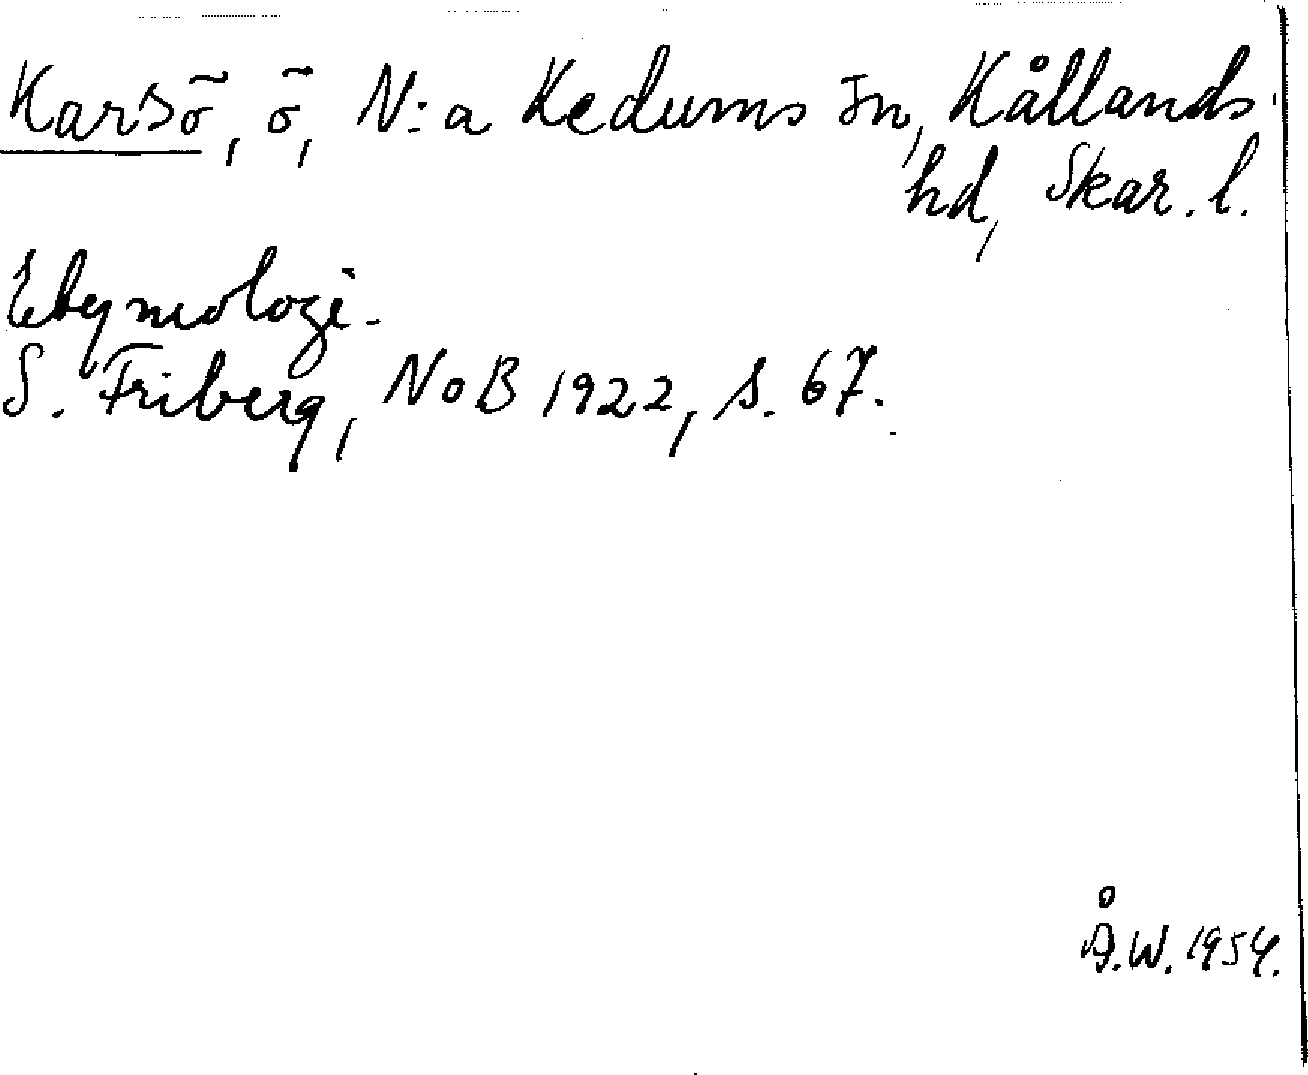 Karsö, ö, N:a Kedums sn, Kållands
hd, Skar. l.
Etymologi.
S. Friberg, NoB 1922, s. 67.
Å.W. 1954.